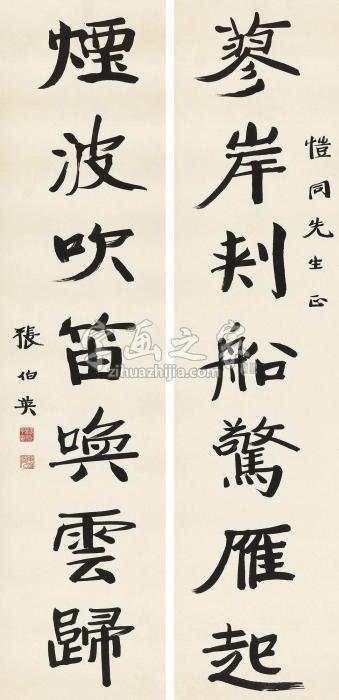 愷同先生正
蓼岸刺船驚雁起
煙波吹笛喚雲歸
張伯英
字画之家
zihuazhijia.com